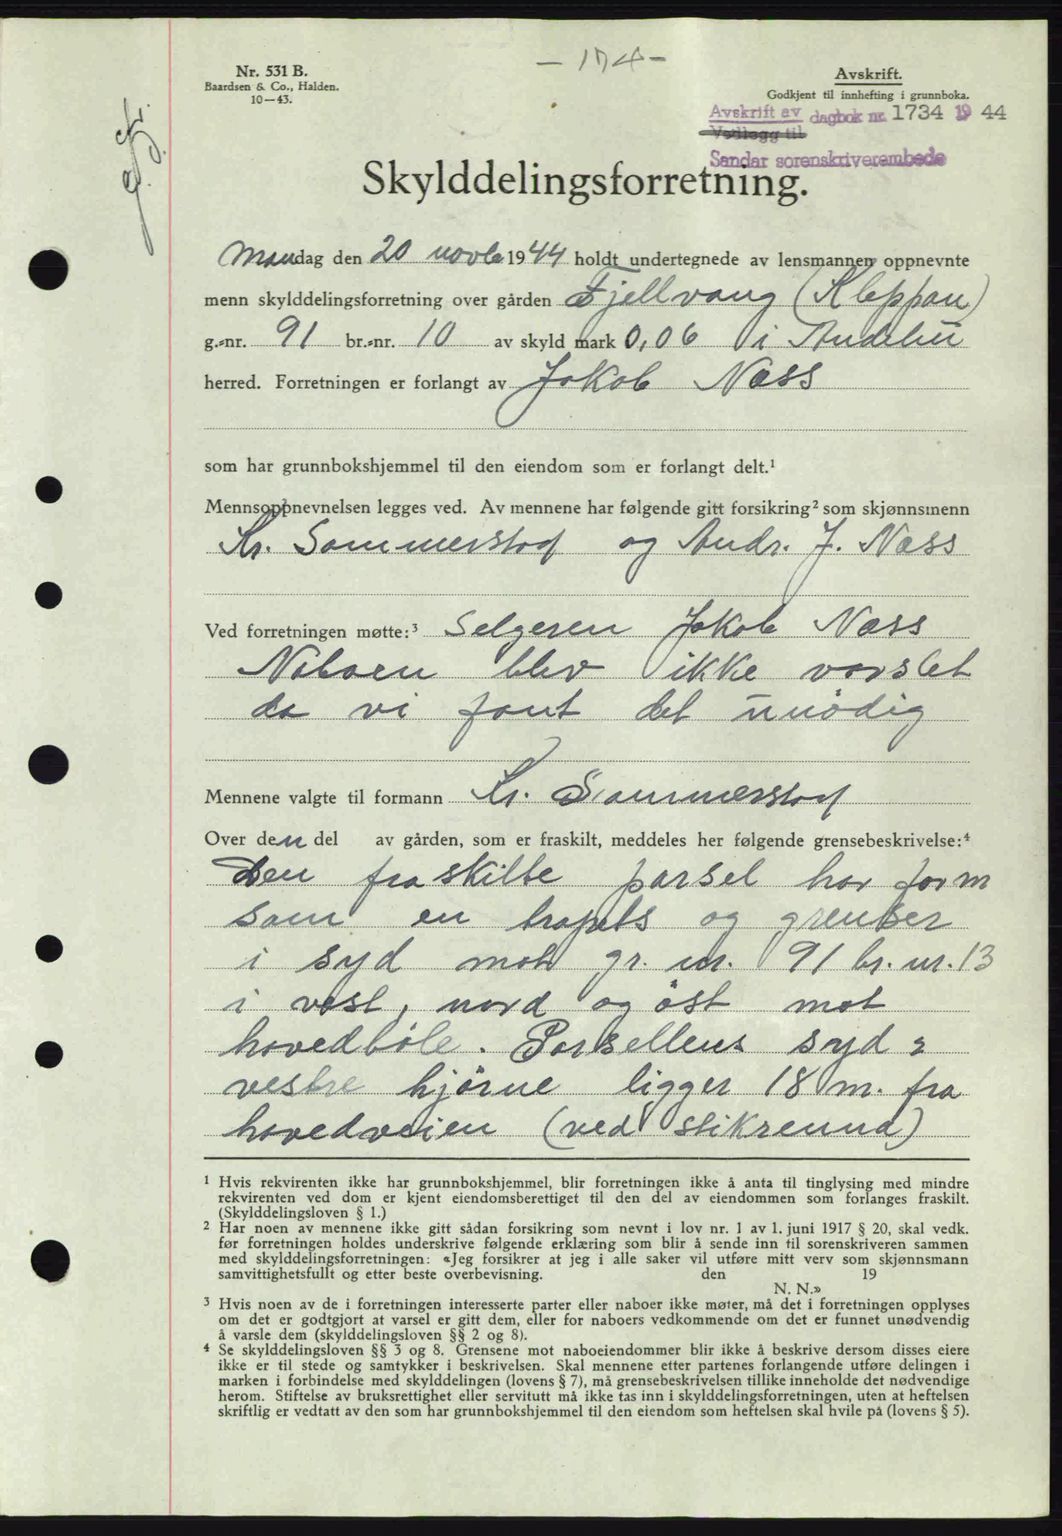 - 174 -
Nr. 531 B.
Baardsen & Co., Halden.
10—43.
Avskrift.
Godkjent til innhefting i grunnboka.
Avskrift av dagbok nr. 1734 1944
Vedlegg til
Sandar sorenskriverembede
Skylddelingsforretning.
Mandag den 20 novbr 1944 holdt undertegnede av lensmannen oppnevnte
menn skylddelingsforretning over gården Fjellvang (Kleppan)
g.-nr. 91 br.-nr. 10 av skyld mark 0,06 i Andebu
herred. Forretningen er forlangt av Jakob Næss
som har grunnbokshjemmel til den eiendom som er forlangt delt.¹
Mennsoppnevnelsen legges ved. Av mennene har følgende gitt forsikring² som skjønnsmenn
Kr. Sommerstad og Andr. J. Næss
Ved forretningen møtte:³ Selgeren Jakob Næss
Naboen blev ikke varslet
da vi fant det unødig
Mennene valgte til formann Kr. Sommerstad
Over den del av gården, som er fraskilt, meddeles her følgende grensebeskrivelse:⁴
Den fraskilte parsel har form
som en trapets og grenser
i syd mot gr. nr. 91 br. nr. 13
i vest, nord og øst mot
hovedbøle. Parsellens syd =
vestre hjørne ligger 18 m. fra
hovedveien (ved stikrenna)
¹ Hvis rekvirenten ikke har grunnbokshjemmel, blir forretningen ikke å anta til tinglysing med mindre
rekvirenten ved dom er kjent eiendomsberettiget til den del av eiendommen som forlanges fraskilt.
(Skylddelingsloven § 1.)
² Har noen av mennene ikke gitt sådan forsikring som nevnt i lov nr. 1 av 1. juni 1917 § 20, skal vedk.
før forretningen holdes underskrive følgende erklæring som blir å sende inn til sorenskriveren sammen
med skylddelingsforretningen: «Jeg forsikrer at jeg i alle saker vil utføre mitt verv som skjønnsmann
samvittighetsfullt og etter beste overbevisning. den 19
N. N.»
³ Hvis noen av de i forretningen interesserte parter eller naboer ikke møter, må det i forretningen opplyses
om det er godtgjort at varsel er gitt dem, eller for naboers vedkommende om det er funnet unødvendig
å varsle dem (skylddelingsloven §§ 2 og 8).
⁴ Se skylddelingsloven §§ 3 og 8. Grensene mot naboeiendommer blir ikke å beskrive dersom disses eiere
ikke er til stede og samtykker i beskrivelsen. Skal mennene etter partenes forlangende utføre delingen i
marken i forbindelse med skylddelingen (lovens § 7), må grensebeskrivelsen tillike inneholde det nødvendige
herom. Stiftelse av bruksrettighet eller servitutt må ikke tas inn i skylddelingsforretningen, uten at heftelsen
skriftlig er vedtatt av den som har grunnbokshjemmel til den eiendom som heftelsen skal hvile på (lovens § 5).